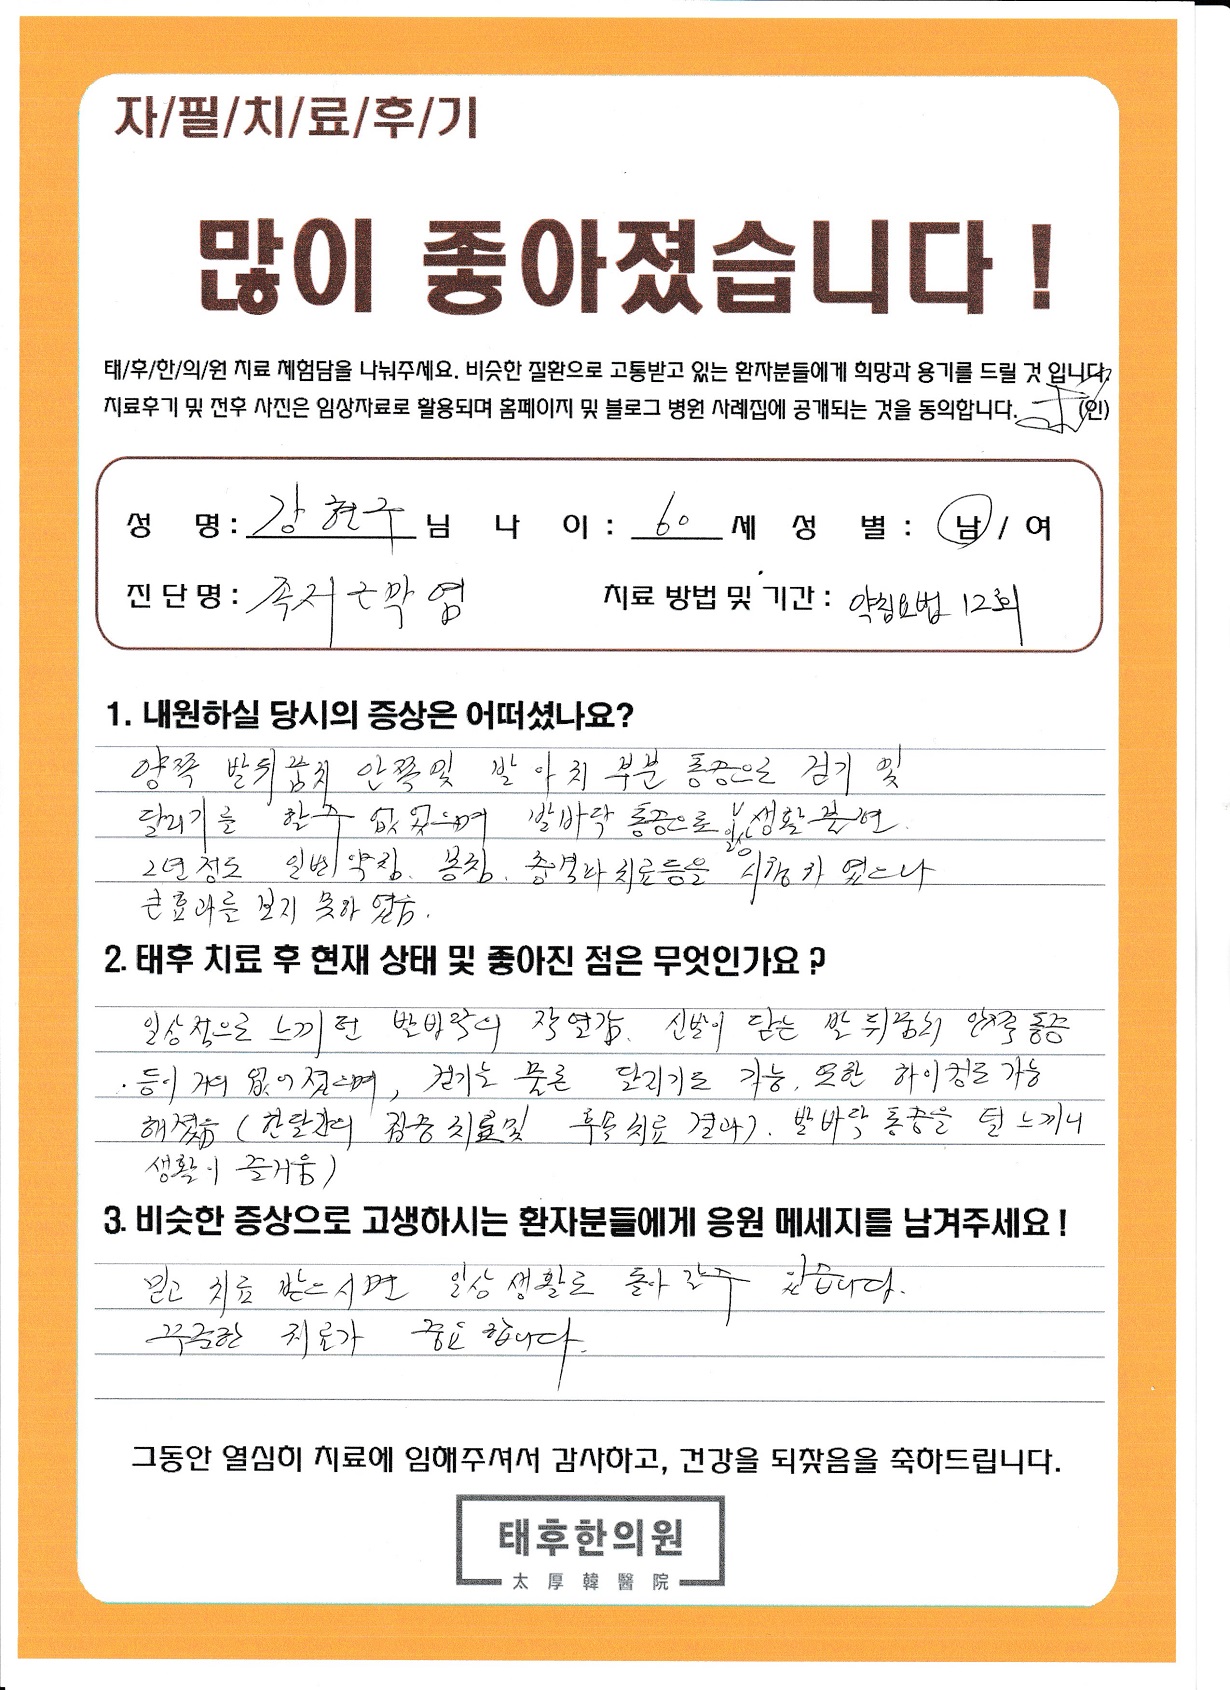 자/필/치/료/후/기
많이 좋아졌습니다!
태/후/한/의/원 치료 체험담을 나눠주세요. 비슷한 질환으로 고통받고 있는 환자분들에게 희망과 용기를 드릴 것 입니다.
치료후기 및 전후 사진은 임상자료로 활용되며 홈페이지 및 블로그 병원 사례집에 공개되는 것을 동의합니다. (인)
성 명 : 강현구 님 나 이 : 60 세 성 별 : 남 / 여
진단명 : 족저근막염 치료 방법 및 기간 : 약침요법 12회
1. 내원하실 당시의 증상은 어떠셨나요?
양쪽 발뒤꿈치 안쪽 및 발 아치 부분 통증으로 걷기 및
달리기를 할수 없었으며 발바닥 통증으로 일상생활 불편.
2년정도 일반약침. 봉침. 충격파치료등을 시행 하였으나
큰효과를 보지 못하였음.
2. 태후 치료 후 현재 상태 및 좋아진 점은 무엇인가요?
일상적으로 느끼던 발바닥의 작열감. 신발이 닿는 발뒤꿈치 안쪽통증
등이 거의 없어졌으며, 걷기는 물론 달리기도 가능. 또한 하이킹도 가능
해졌음 (한달간의 집중 치료및 후속치료 결과). 발바닥 통증을 덜 느끼니
생활이 즐거움)
3. 비슷한 증상으로 고생하시는 환자분들에게 응원 메세지를 남겨주세요!
믿고 치료 받으시면 일상생활로 돌아 갈수 있습니다.
꾸준한 치료가 중요합니다.
그동안 열심히 치료에 임해주셔서 감사하고, 건강을 되찾음을 축하드립니다.
태후한의원
太厚韓醫院